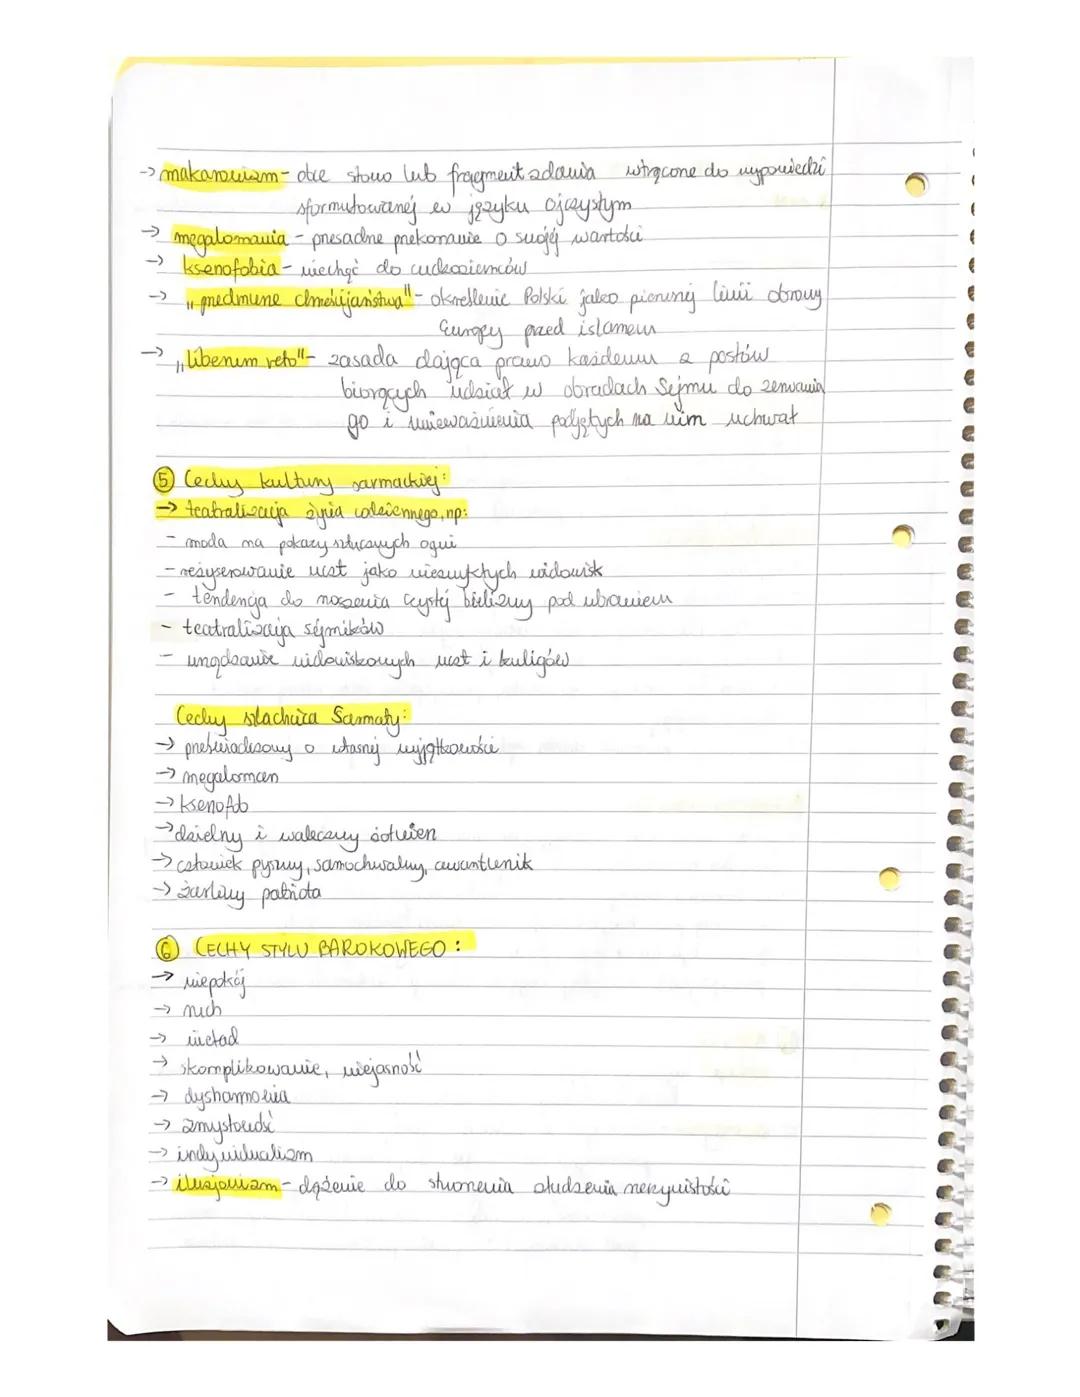 -> makaronizm - obce słowo lub fragment zdania wtrącone do wypowiedzi
sformułowanej w języku ojczystym
-> megalomania - przesadne przekonanie o swojej wartości
-> ksenofobia - niechęć do cudzoziemców
-> "przedmurze chrześcijaństwa" - określenie Polski jako pierwszej linii obrony
Europy przed islamem
-> "liberum veto" - zasada dająca prawo każdemu z posłów
biorących udział w obradach Sejmu do zerwania
go i unieważnienia podjętych na nim uchwał
⑤ Cechy kultury sarmackiej:
-> teatralizacja życia codziennego, np:
- moda na pokazy sztucznych ogni
- reżyserowanie uczt jako niezwykłych widowisk
- tendencja do noszenia czystej bielizny pod ubraniem
- teatralizacja sejmików
- urządzanie widowiskowych uczt i kuligów
Cechy szlachcica Sarmaty:
-> przeświadczony o własnej wyjątkowości
-> megaloman
-> ksenofob
-> dzielny i waleczny żołnierz
-> człowiek pyszny, samochwalny, awanturnik
-> żarliwy patriota
⑥ CECHY STYLU BAROKOWEGO:
-> niepokój
-> ruch
-> nieład
-> skomplikowanie, niejasność
-> dysharmonia
-> zmysłowość
-> indywidualizm
-> iluzjonizm - dążenie do stworzenia złudzenia rzeczywistości